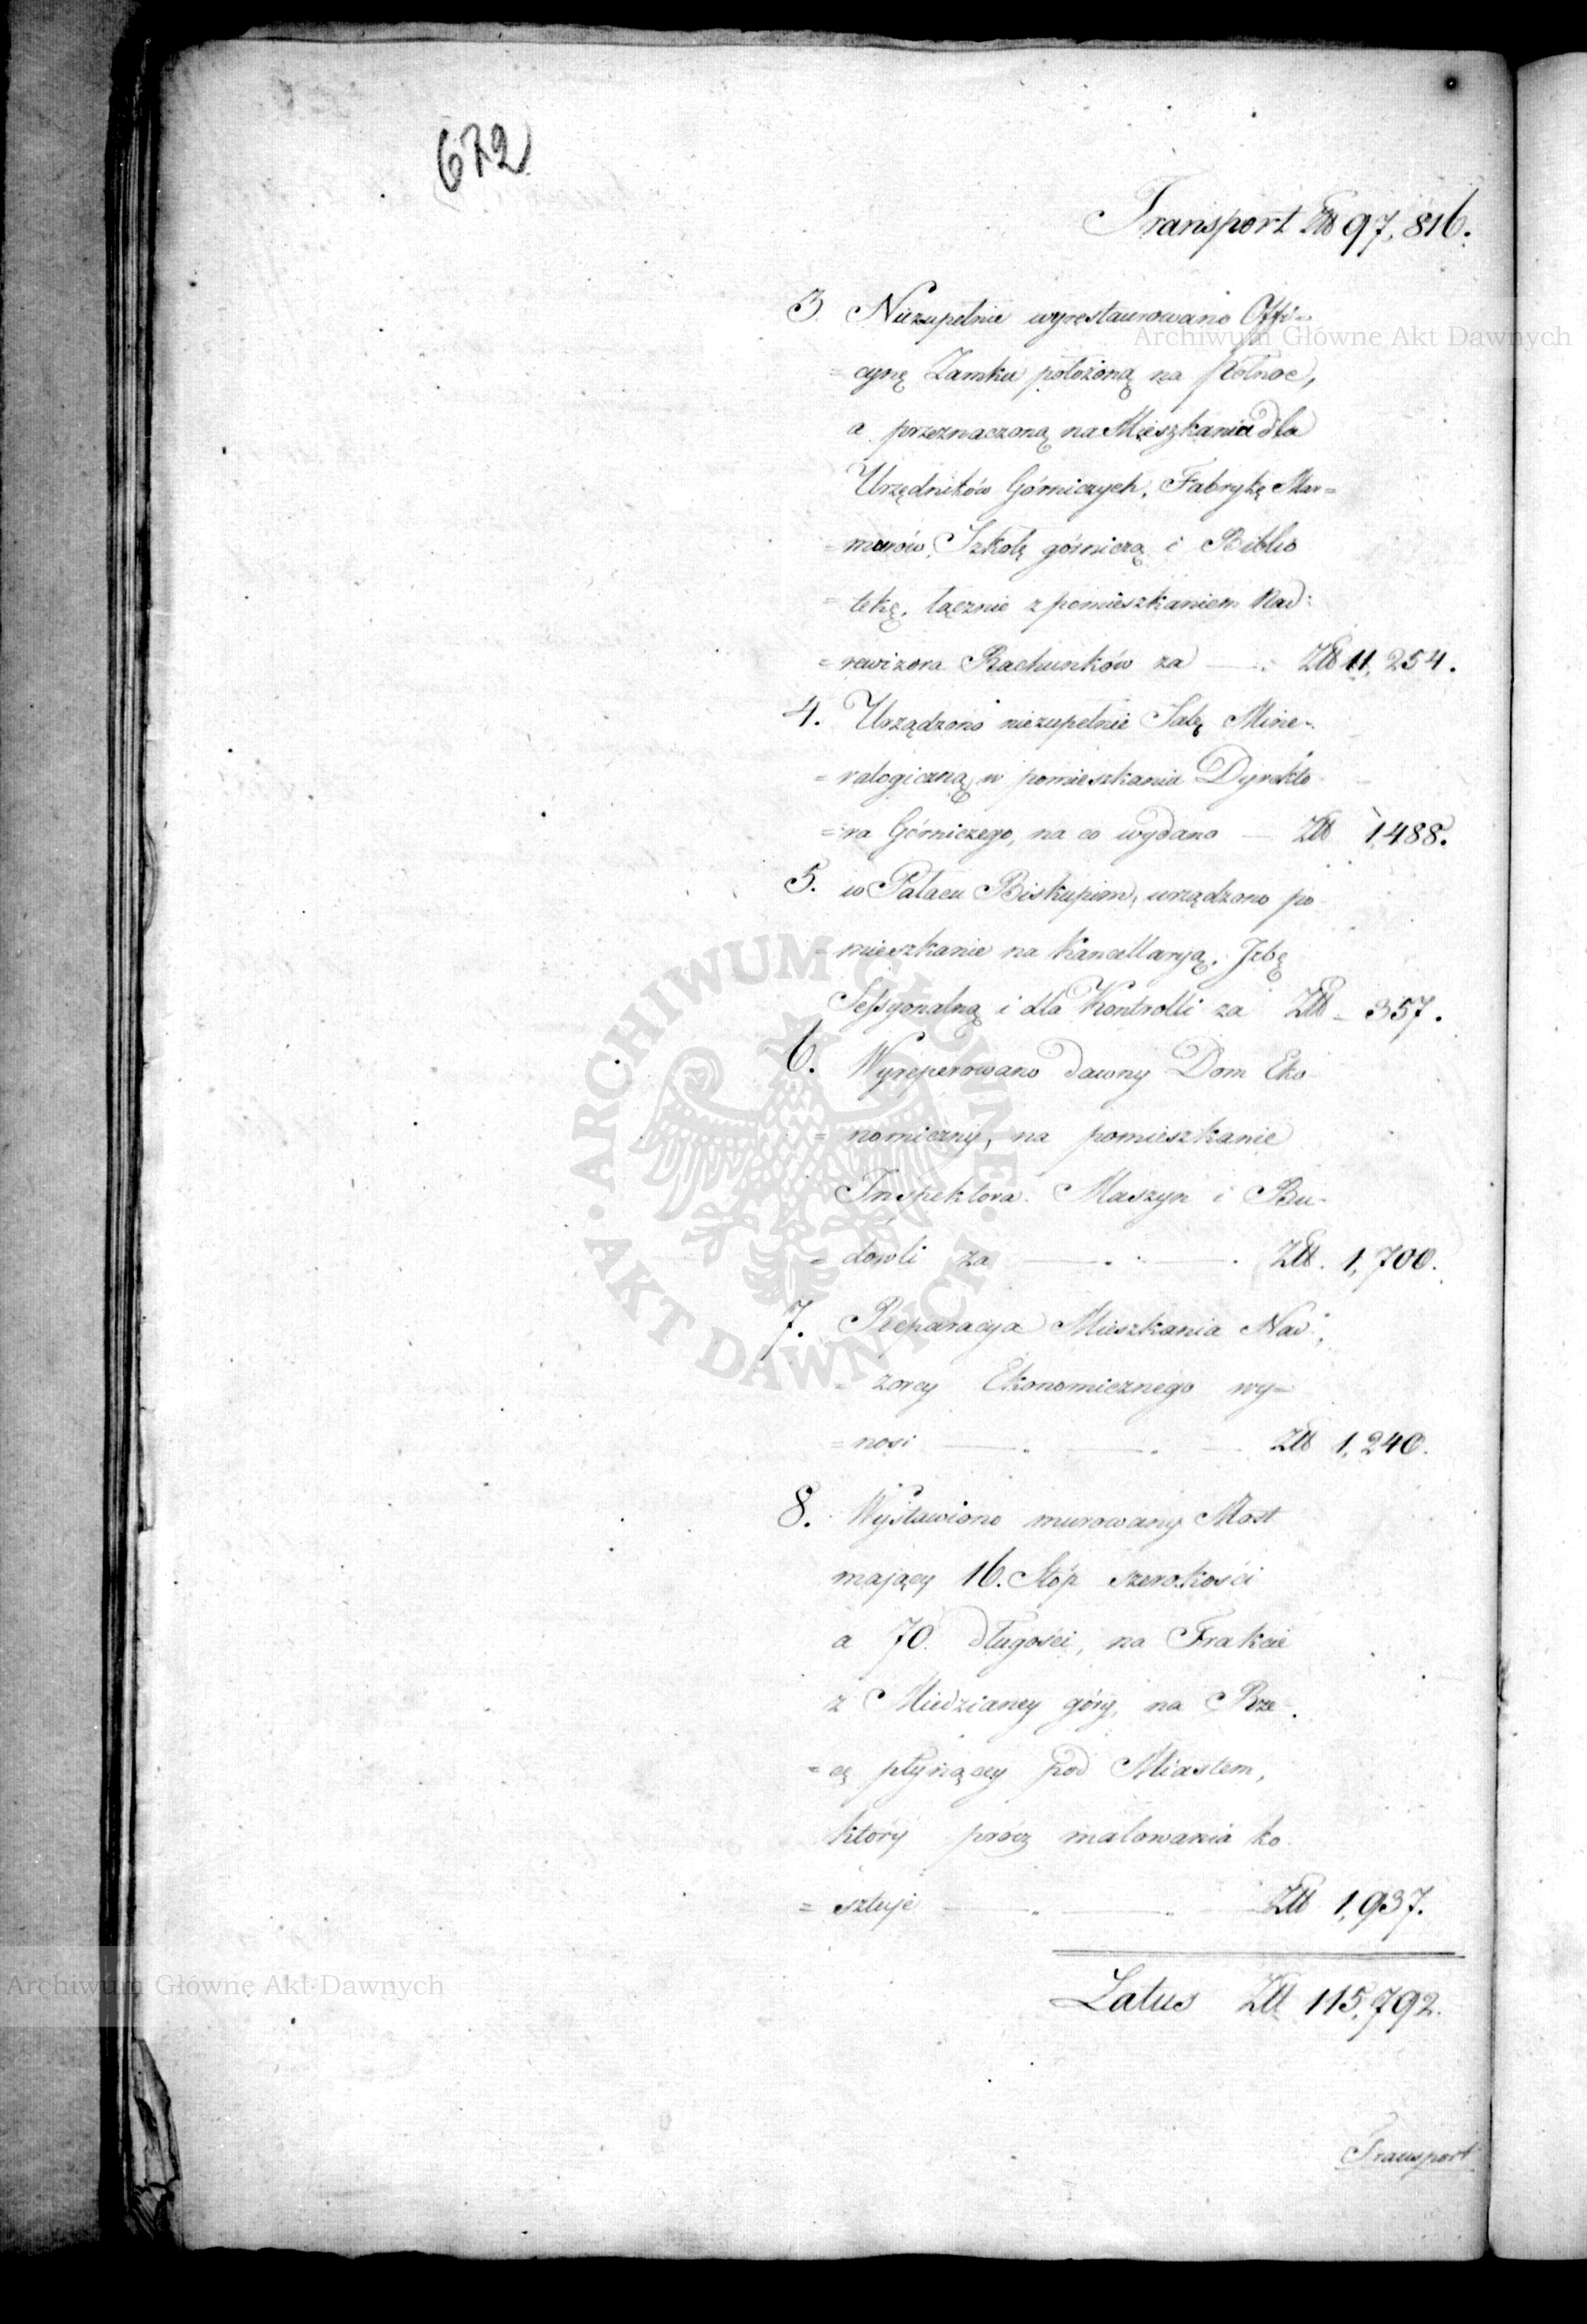 672
Transport Złł 97,816.
3. Niezupełnie wyrestaurowano Offi=
=cynę Zamku położoną na Północ,
a przeznaczoną na Mieszkania dla
Urzędników Górniczych, Fabrykę Mar=
=murów, Szkołę górniczą i Biblio
=tekę, łącznie z pomieszkaniem Nad=
=rewizora Rachunków za — Złł 11,254.
4. Urządzono niezupełnie Salę Mine=
=ralogiczną w pomieszkaniu Dyrekto
=ra Górniczego, na co wydano — Złł 1,488.
5. w Pałacu Biskupim, urządzono po
=mieszkanie na Kancellaryją, Jzbę
Sessyonalną i dla Kontrolli za Złł — 357.
6. Wyreperowano dawny Dom Eko
=nomiczny, na pomieszkanie
Inspektora Maszyn i Bu-
=dowli za — . — . Złł. 1,700.
7. Reparacya Mieszkania Nad=
=zorcy Ekonomicznego wy=
=nosi — . — . — Złł 1,240.
8. Wystawiono murowany Most
mający 16. Stóp szerokości
a 70. długości, na Trakcie
z Miedzianey góry, na Rze=
=cę płynącey pod Miastem,
który prócz malowania ko
=sztuje — . — . — Złł 1,937.
Latus Złł 115,792.
Transport
Archiwum Główne Akt Dawnych
ARCHIWUM GŁÓWNE · AKT DAWNYCH ·
Archiwum Główne Akt Dawnych